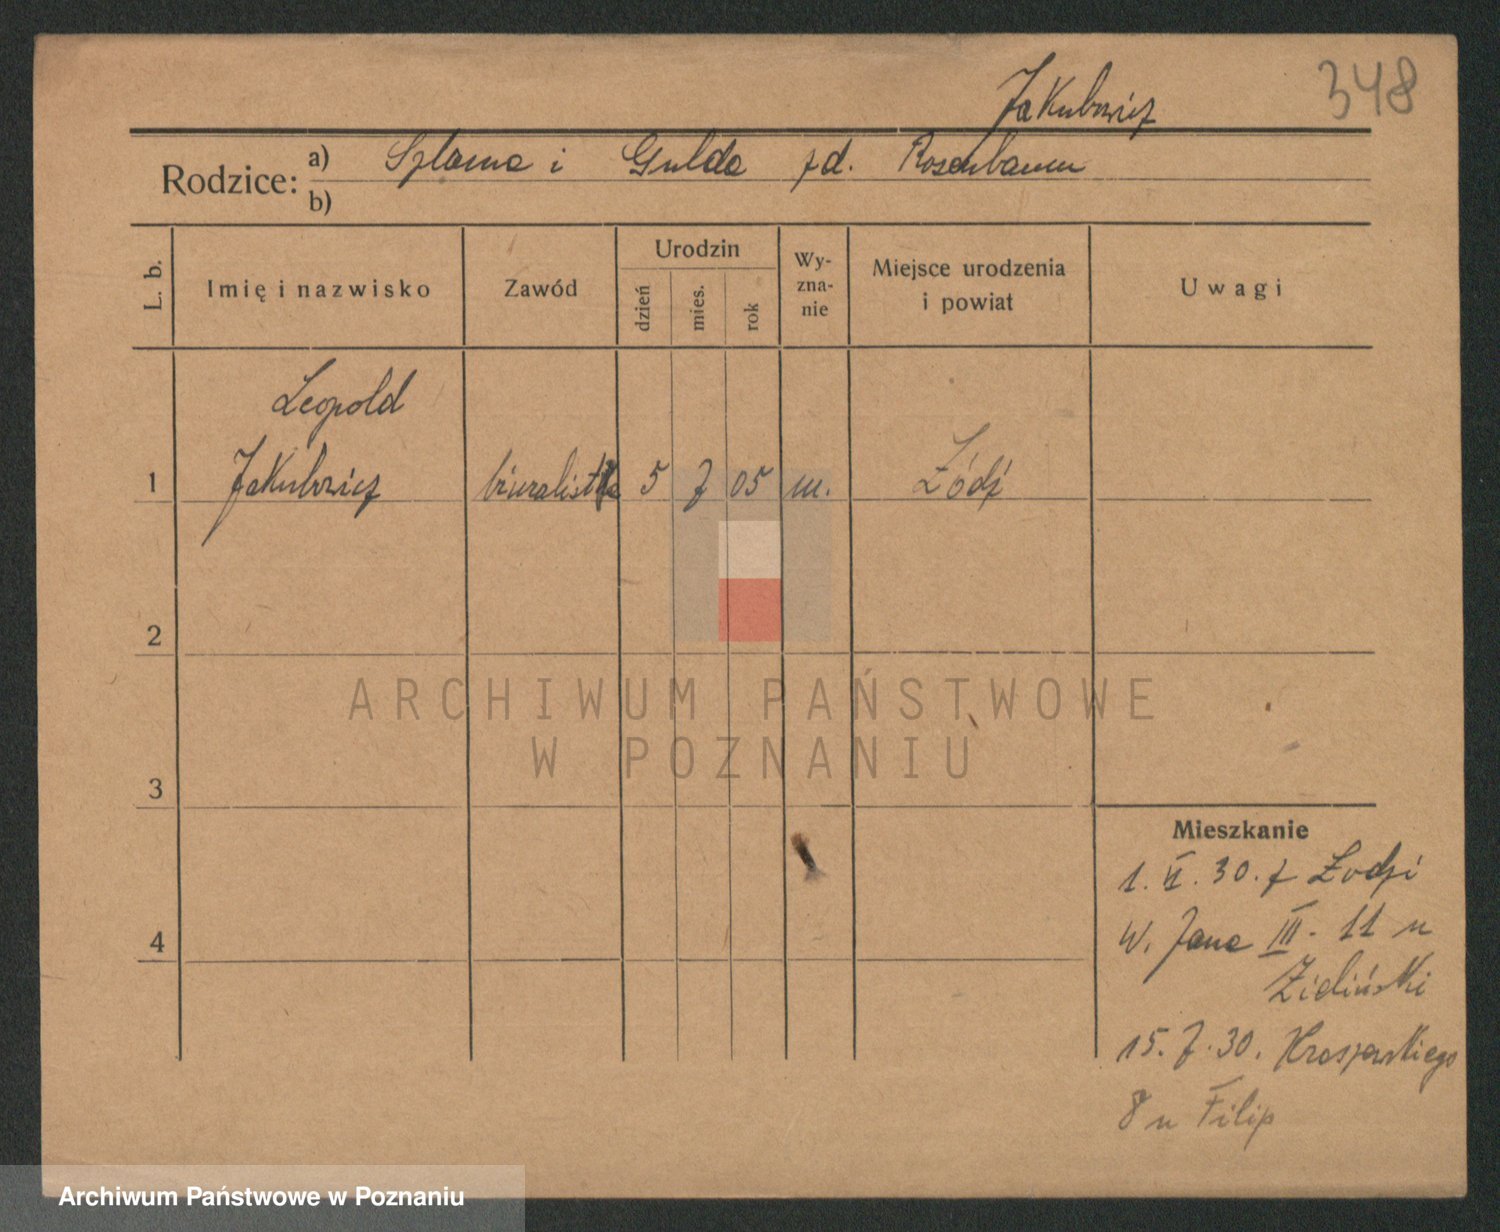 348
Jakubowicz
Rodzice:
a) Szlama i Gulda zd. Rosenbaum
b)
L. b.
Imię i nazwisko
Zawód
Urodzin
dzień
mies.
rok
Wy-
zna-
nie
Miejsce urodzenia
i powiat
Uwagi
Leopold
1 Jakubowicz biuralista 5 7 05 m. Łódź
2
3
4
Mieszkanie
1. VI. 30. z Łodzi
W. Jana III. 11 u
Zieliński
15. 7. 30. Kraszewskiego
8 u Filip
ARCHIWUM PAŃSTWOWE
W POZNANIU
Archiwum Państwowe w Poznaniu